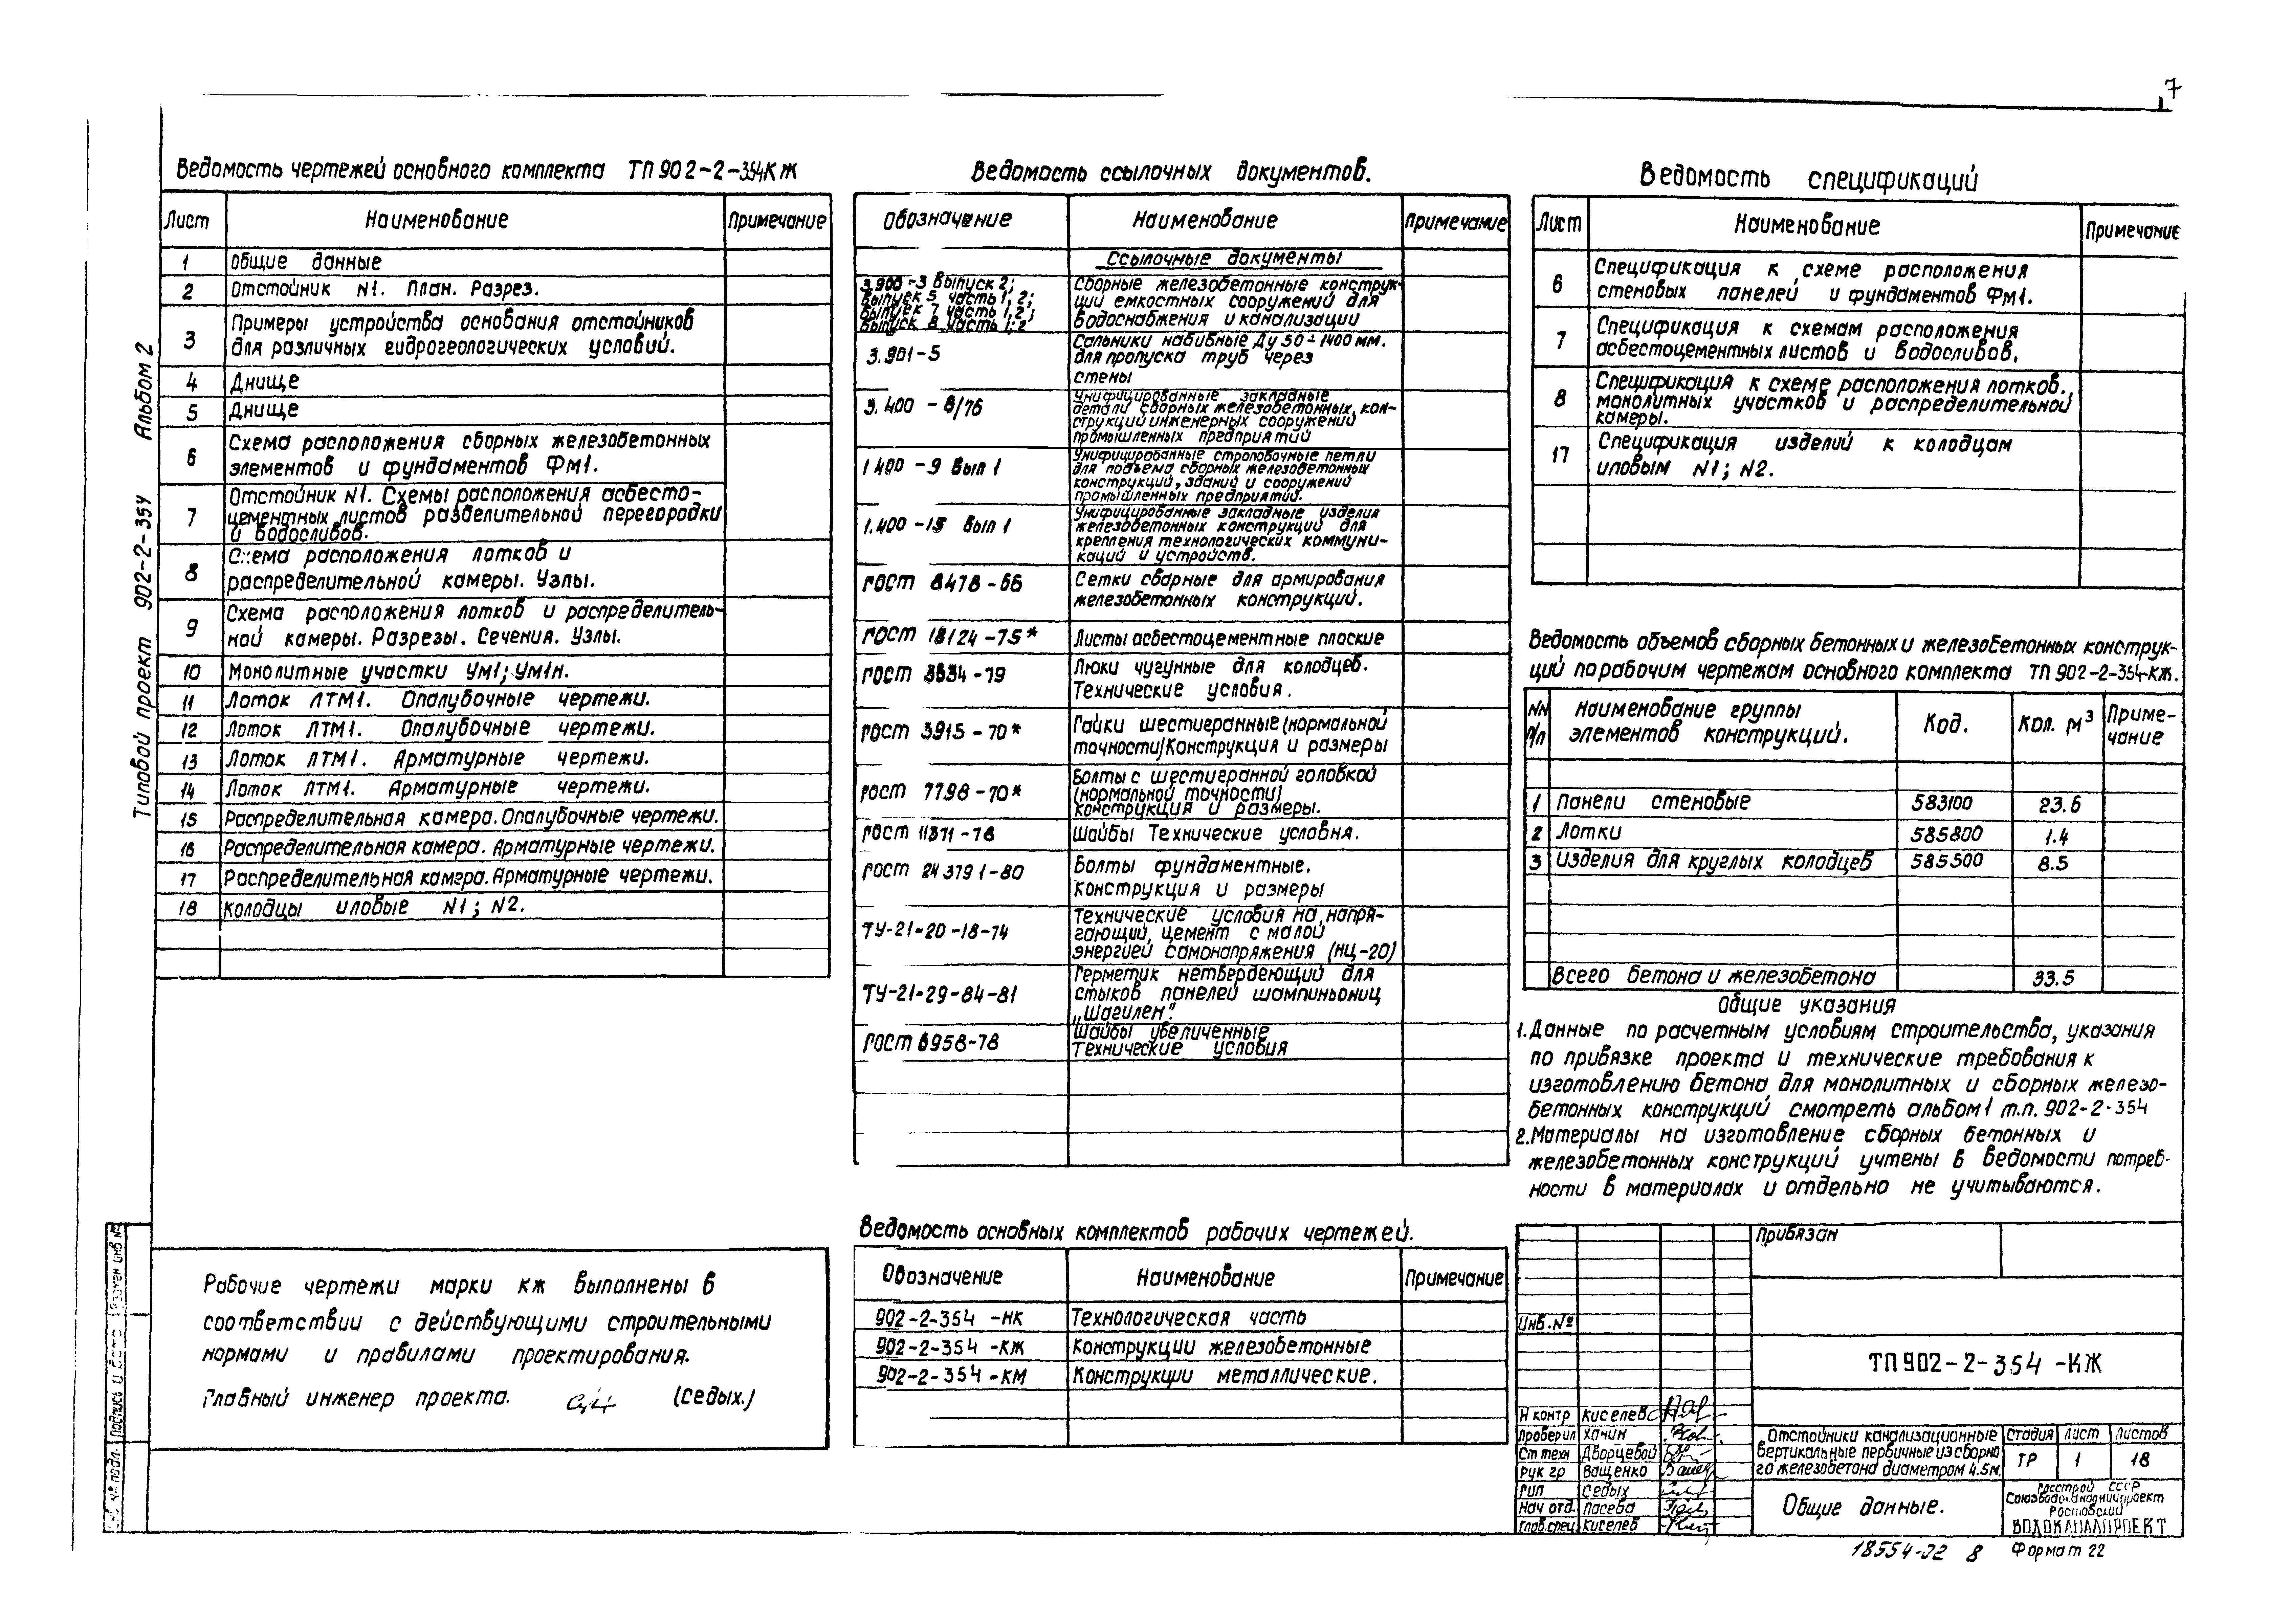 7
Ведомость чертежей основного комплекта ТП 902-2-354КЖ
Лист Наименование Примечание
1 Общие данные
2 Отстойник N1. План. Разрез.
3 Примеры устройства основания отстойников
для различных гидрогеологических условий.
4 Днище
5 Днище
6 Схема расположения сборных железобетонных
элементов и фундаментов Фм1.
7 Отстойник N1. Схемы расположения асбесто-
цементных листов разделительной перегородки
и водосливов.
8 Схема расположения лотков и
распределительной камеры. Узлы.
9 Схема расположения лотков и распределитель-
ной камеры. Разрезы. Сечения. Узлы.
10 Монолитные участки Ум1; Ум1н.
11 Лоток ЛТМ1. Опалубочные чертежи.
12 Лоток ЛТМ1. Опалубочные чертежи.
13 Лоток ЛТМ1. Арматурные чертежи.
14 Лоток ЛТМ1. Арматурные чертежи.
15 Распределительная камера. Опалубочные чертежи.
16 Распределительная камера. Арматурные чертежи.
17 Распределительная камера. Арматурные чертежи.
18 Колодцы иловые N1; N2.
Рабочие чертежи марки КЖ выполнены в
соответствии с действующими строительными
нормами и правилами проектирования.
Главный инженер проекта. (Седых.)
Ведомость ссылочных документов.
Обозначение Наименование Примечание
Ссылочные документы
3.900-3 Выпуск 2;
Выпуск 5 часть 1, 2;
Выпуск 7 часть 1, 2;
Выпуск 8 часть 1; 2
Сборные железобетонные конструк-
ции емкостных сооружений для
водоснабжения и канализации
3.901-5 Сальники набивные Ду 50÷1400 мм.
для пропуска труб через
стены
3.400-6/76 Унифицированные закладные
детали сборных железобетонных кон-
струкций инженерных сооружений
промышленных предприятий
1.400-9 Вып 1 Унифицированные строповочные петли
для подъема сборных железобетонных
конструкций, зданий и сооружений
промышленных предприятий.
1.400-15 Вып 1 Унифицированные закладные изделия
железобетонных конструкций для
крепления технологических коммуни-
каций и устройств.
ГОСТ 8478-66 Сетки сварные для армирования
железобетонных конструкций.
ГОСТ 18124-75* Листы асбестоцементные плоские
ГОСТ 3634-79 Люки чугунные для колодцев.
Технические условия.
ГОСТ 5915-70* Гайки шестигранные (нормальной
точности) Конструкция и размеры
ГОСТ 7798-70* Болты с шестигранной головкой
(нормальной точности)
конструкция и размеры.
ГОСТ 11371-78 Шайбы Технические условия.
ГОСТ 24379.1-80 Болты фундаментные.
Конструкция и размеры
ТУ-21-20-18-74 Технические условия на напря-
гающий, цемент с малой
энергией самонапряжения (НЦ-20)
ТУ-21-29-84-81 Герметик нетвердеющий для
стыков панелей шампиньониц
„Шагилен".
ГОСТ 6958-78 Шайбы увеличенные
Технические условия
Ведомость основных комплектов рабочих чертежей.
Обозначение Наименование Примечание
902-2-354 -НК Технологическая часть
902-2-354 -КЖ Конструкции железобетонные
902-2-354 -КМ Конструкции металлические.
Ведомость спецификаций
Лист Наименование Примечание
6 Спецификация к схеме расположения
стеновых панелей и фундаментов Фм1.
7 Спецификация к схемам расположения
асбестоцементных листов и водосливов.
8 Спецификация к схеме расположения лотков,
монолитных участков и распределительной
камеры.
17 Спецификация изделий к колодцам
иловым N1; N2.
Ведомость объемов сборных бетонных и железобетонных конструк-
ций по рабочим чертежам основного комплекта ТП 902-2-354-КЖ.
NN п/п Наименование группы элементов конструкций. Код. Кол. м³ Приме-
чание
1 Панели стеновые 583100 23.6
2 Лотки 585800 1.4
3 Изделия для круглых колодцев 585500 8.5
Всего бетона и железобетона 33.5
Общие указания
1. Данные по расчетным условиям строительства, указания
по привязке проекта и технические требования к
изготовлению бетона для монолитных и сборных железо-
бетонных конструкций смотреть альбом 1 т.п. 902-2-354
2. Материалы на изготовление сборных бетонных и
железобетонных конструкций учтены в ведомости потреб-
ности в материалах и отдельно не учитываются.
Привязан
Инв. №
ТП 902-2-354 -КЖ
Н контр Киселев
Проверил Хачин
Ст техн Дворцевой
Рук гр Ващенко
Гип Седых
Нач отд. Пасева
Глав.спец Киселев
Отстойники канализационные
вертикальные первичные из сборно
го железобетона диаметром 4.5м.
Стадия Лист Листов
ТР 1 18
Общие данные.
Госстрой СССР
Союзводоканалниипроект
Ростовский
ВОДОКАНАЛПРОЕКТ
18554-02 8 Формат 22
Типовой проект 902-2-354 Альбом 2
Подпись и дата Взамен инв №